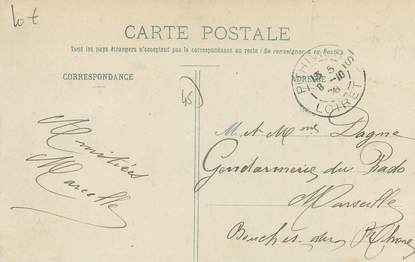 lot
CARTE POSTALE
Tous les pays étrangers n'acceptent pas la correspondance au recto (Se renseigner à la Poste)
CORRESPONDANCE
ADRESSE
5
8-10
LOIRET
45
M. et Mme Dagne
Gendarmerie du Prado
Marseille
Bouches-du-Rhône
Amitiés
Marcelle